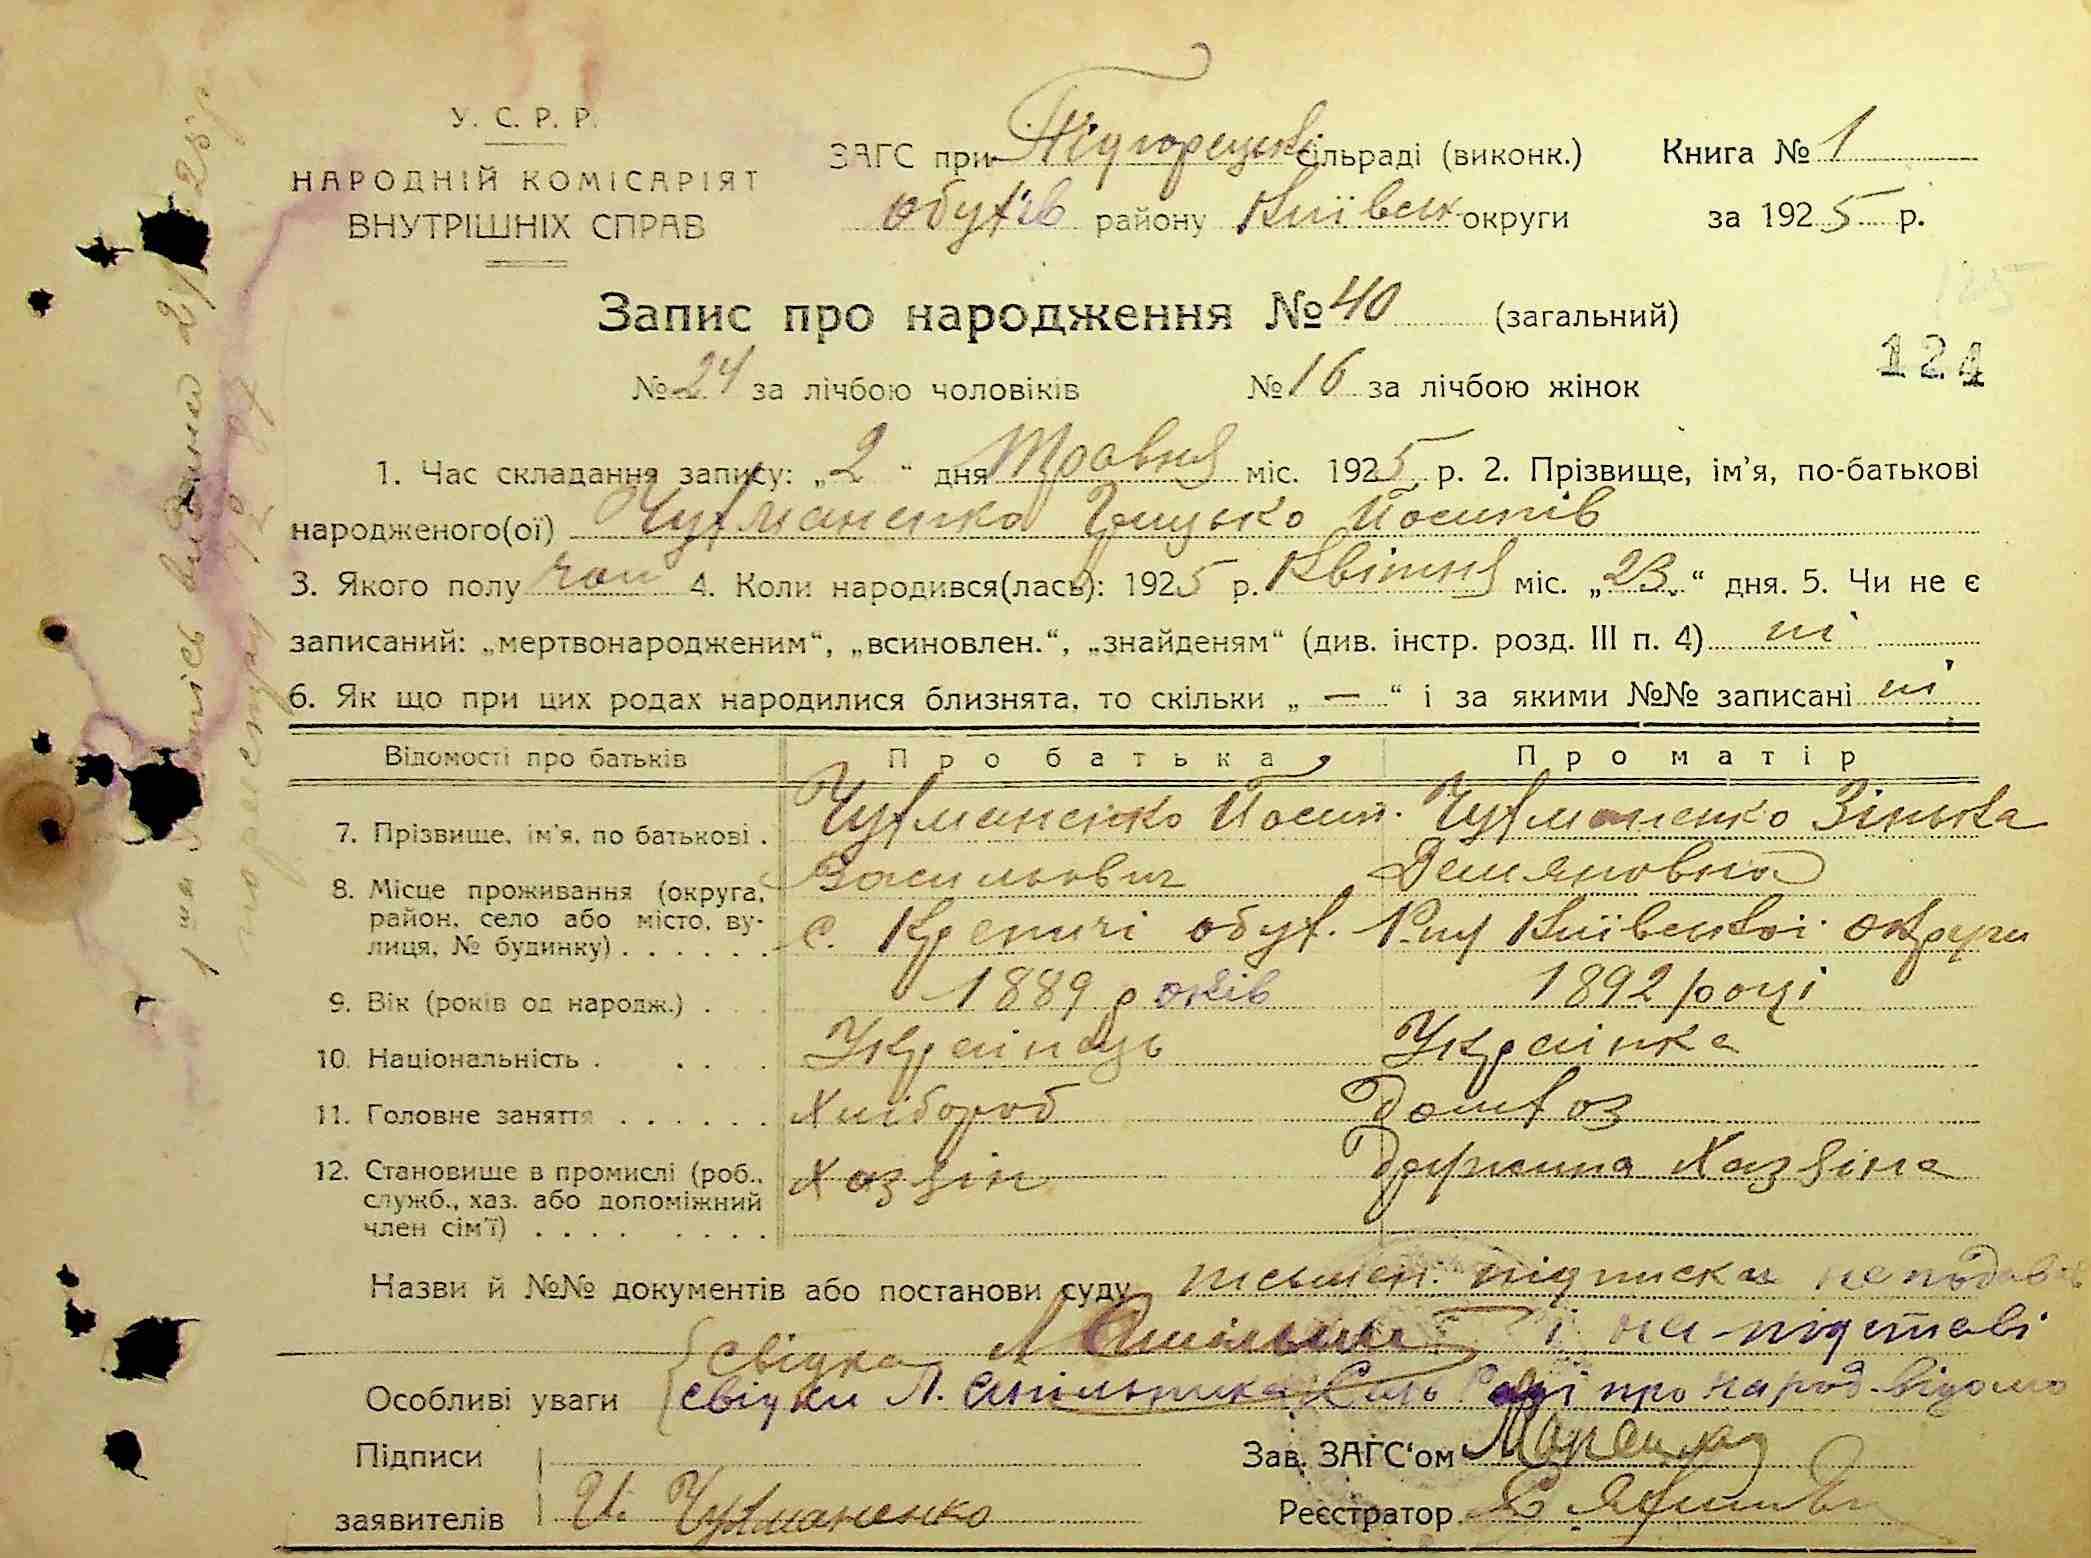 У. С. Р. Р.
НАРОДНІЙ КОМІСАРІЯТ
ВНУТРІШНІХ СПРАВ
ЗАГС при Підгорецькі сільраді (виконк.) Книга № 1
обухів району Київськ округи за 1925 р.
Запис про народження № 40 (загальний)
124
№ 24 за лічбою чоловіків № 16 за лічбою жінок
1. Час складання запису: „2“ дня Травня міс. 1925 р. 2. Прізвище, ім’я, по-батькові
народженого(ої) Чухманенко Грицько Йосипів
3. Якого полу чол 4. Коли народився(лась): 1925 р. Квітня міс. „23“ дня. 5. Чи не є
записаний: „мертвонародженим“, „всиновлен.“, „знайденям“ (див. інстр. розд. III п. 4) ні
6. Як що при цих родах народилися близнята, то скільки „ — “ і за якими №№ записані ні
Відомості про батьків Про батька Про матір
7. Прізвище, ім’я, по батькові . Чухманенко Йосип. Чухманенко Зінька
Васильович Демяновна
8. Місце проживання (округа,
район, село або місто, ву-
лиця, № будинку) . . . . . . с. Креничі обух. Р-ну Київської округи
9. Вік (років од народж.) . 1889 років 1892 році
10. Національність . . . . Українець Українка
11. Головне заняття . . . . . . Хлібороб Домхоз
12. Становище в промислі (роб.,
служб., хаз. або допоміжний
член сім’ї) . . . . . . . . Хазяін Дружина Хазяіна
Назви й №№ документів або постанови суду письмен. підписки не подав
свідка А і на підставі
Особливі уваги свідки А. Сіль Раді про народ. відомо
Підписи Зав. ЗАГС‘ом
заявителів И. Чухманенко Реєстратор